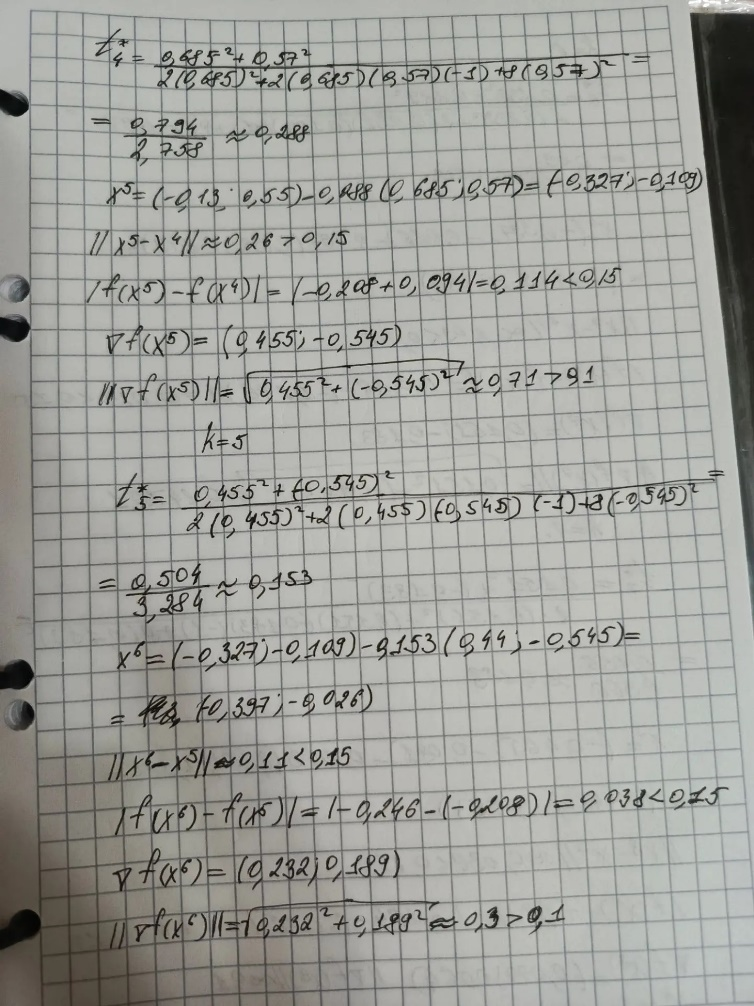 t₄* = (0,685² + 0,57²) / (2(0,685)² + 2(0,685)(0,57)(-1) + 8(0,57)²) =
= 0,794 / 2,758 ≈ 0,288
x⁵ = (-0,13; 0,55) - 0,288 (0,685; 0,57) = (-0,327; -0,109)
||x⁵ - x⁴|| ≈ 0,26 > 0,15
|f(x⁵) - f(x⁴)| = |-0,208 + 0,094| = 0,114 < 0,15
∇f(x⁵) = (0,455; -0,545)
||∇f(x⁵)|| = √(0,455² + (-0,545)²) ≈ 0,71 > 0,1
k = 5
t₅* = (0,455² + (-0,545)²) / (2(0,455)² + 2(0,455)(-0,545)(-1) + 8(-0,545)²) =
= 0,504 / 3,284 ≈ 0,153
x⁶ = (-0,327; -0,109) - 0,153 (0,44; -0,545) =
= (-0,397; -0,026)
||x⁶ - x⁵|| ≈ 0,11 < 0,15
|f(x⁶) - f(x⁵)| = |-0,246 - (-0,208)| = 0,038 < 0,15
∇f(x⁶) = (0,232; 0,189)
||∇f(x⁶)|| = √(0,232² + 0,189²) ≈ 0,3 > 0,1